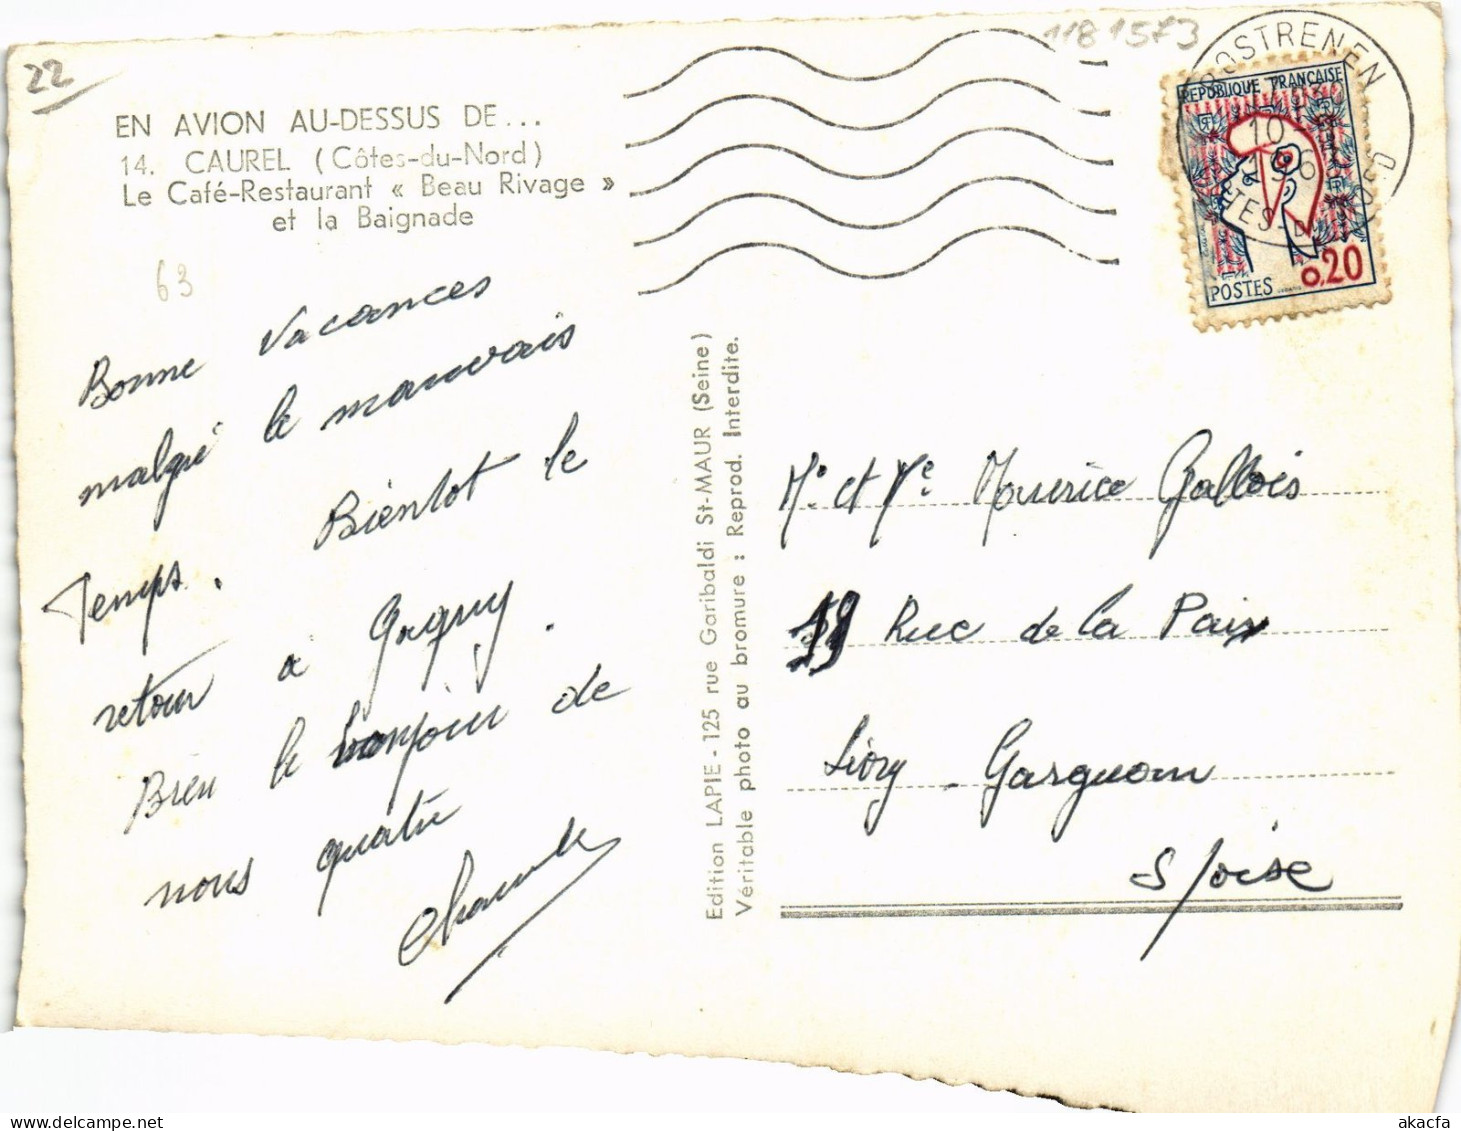 22
1181573
EN AVION AU-DESSUS DE...
14. CAUREL (Côtes-du-Nord)
Le Café-Restaurant « Beau Rivage »
et la Baignade
63
Bonne Vacances
malgré le mauvais
Temps. Bientot le
retour à Gagny.
Bien le bonjour de
nous quatre
Edition LAPIE - 125 rue Garibaldi St-MAUR (Seine)
Véritable photo au bromure : Reprod. Interdite.
ROSTRENEN
REPUBLIQUE FRANÇAISE
POSTES 0,20
Mr et Me Maurice Gallois
19 Rue de la Paix
Livry - Gargnom
S/oise
akacfa